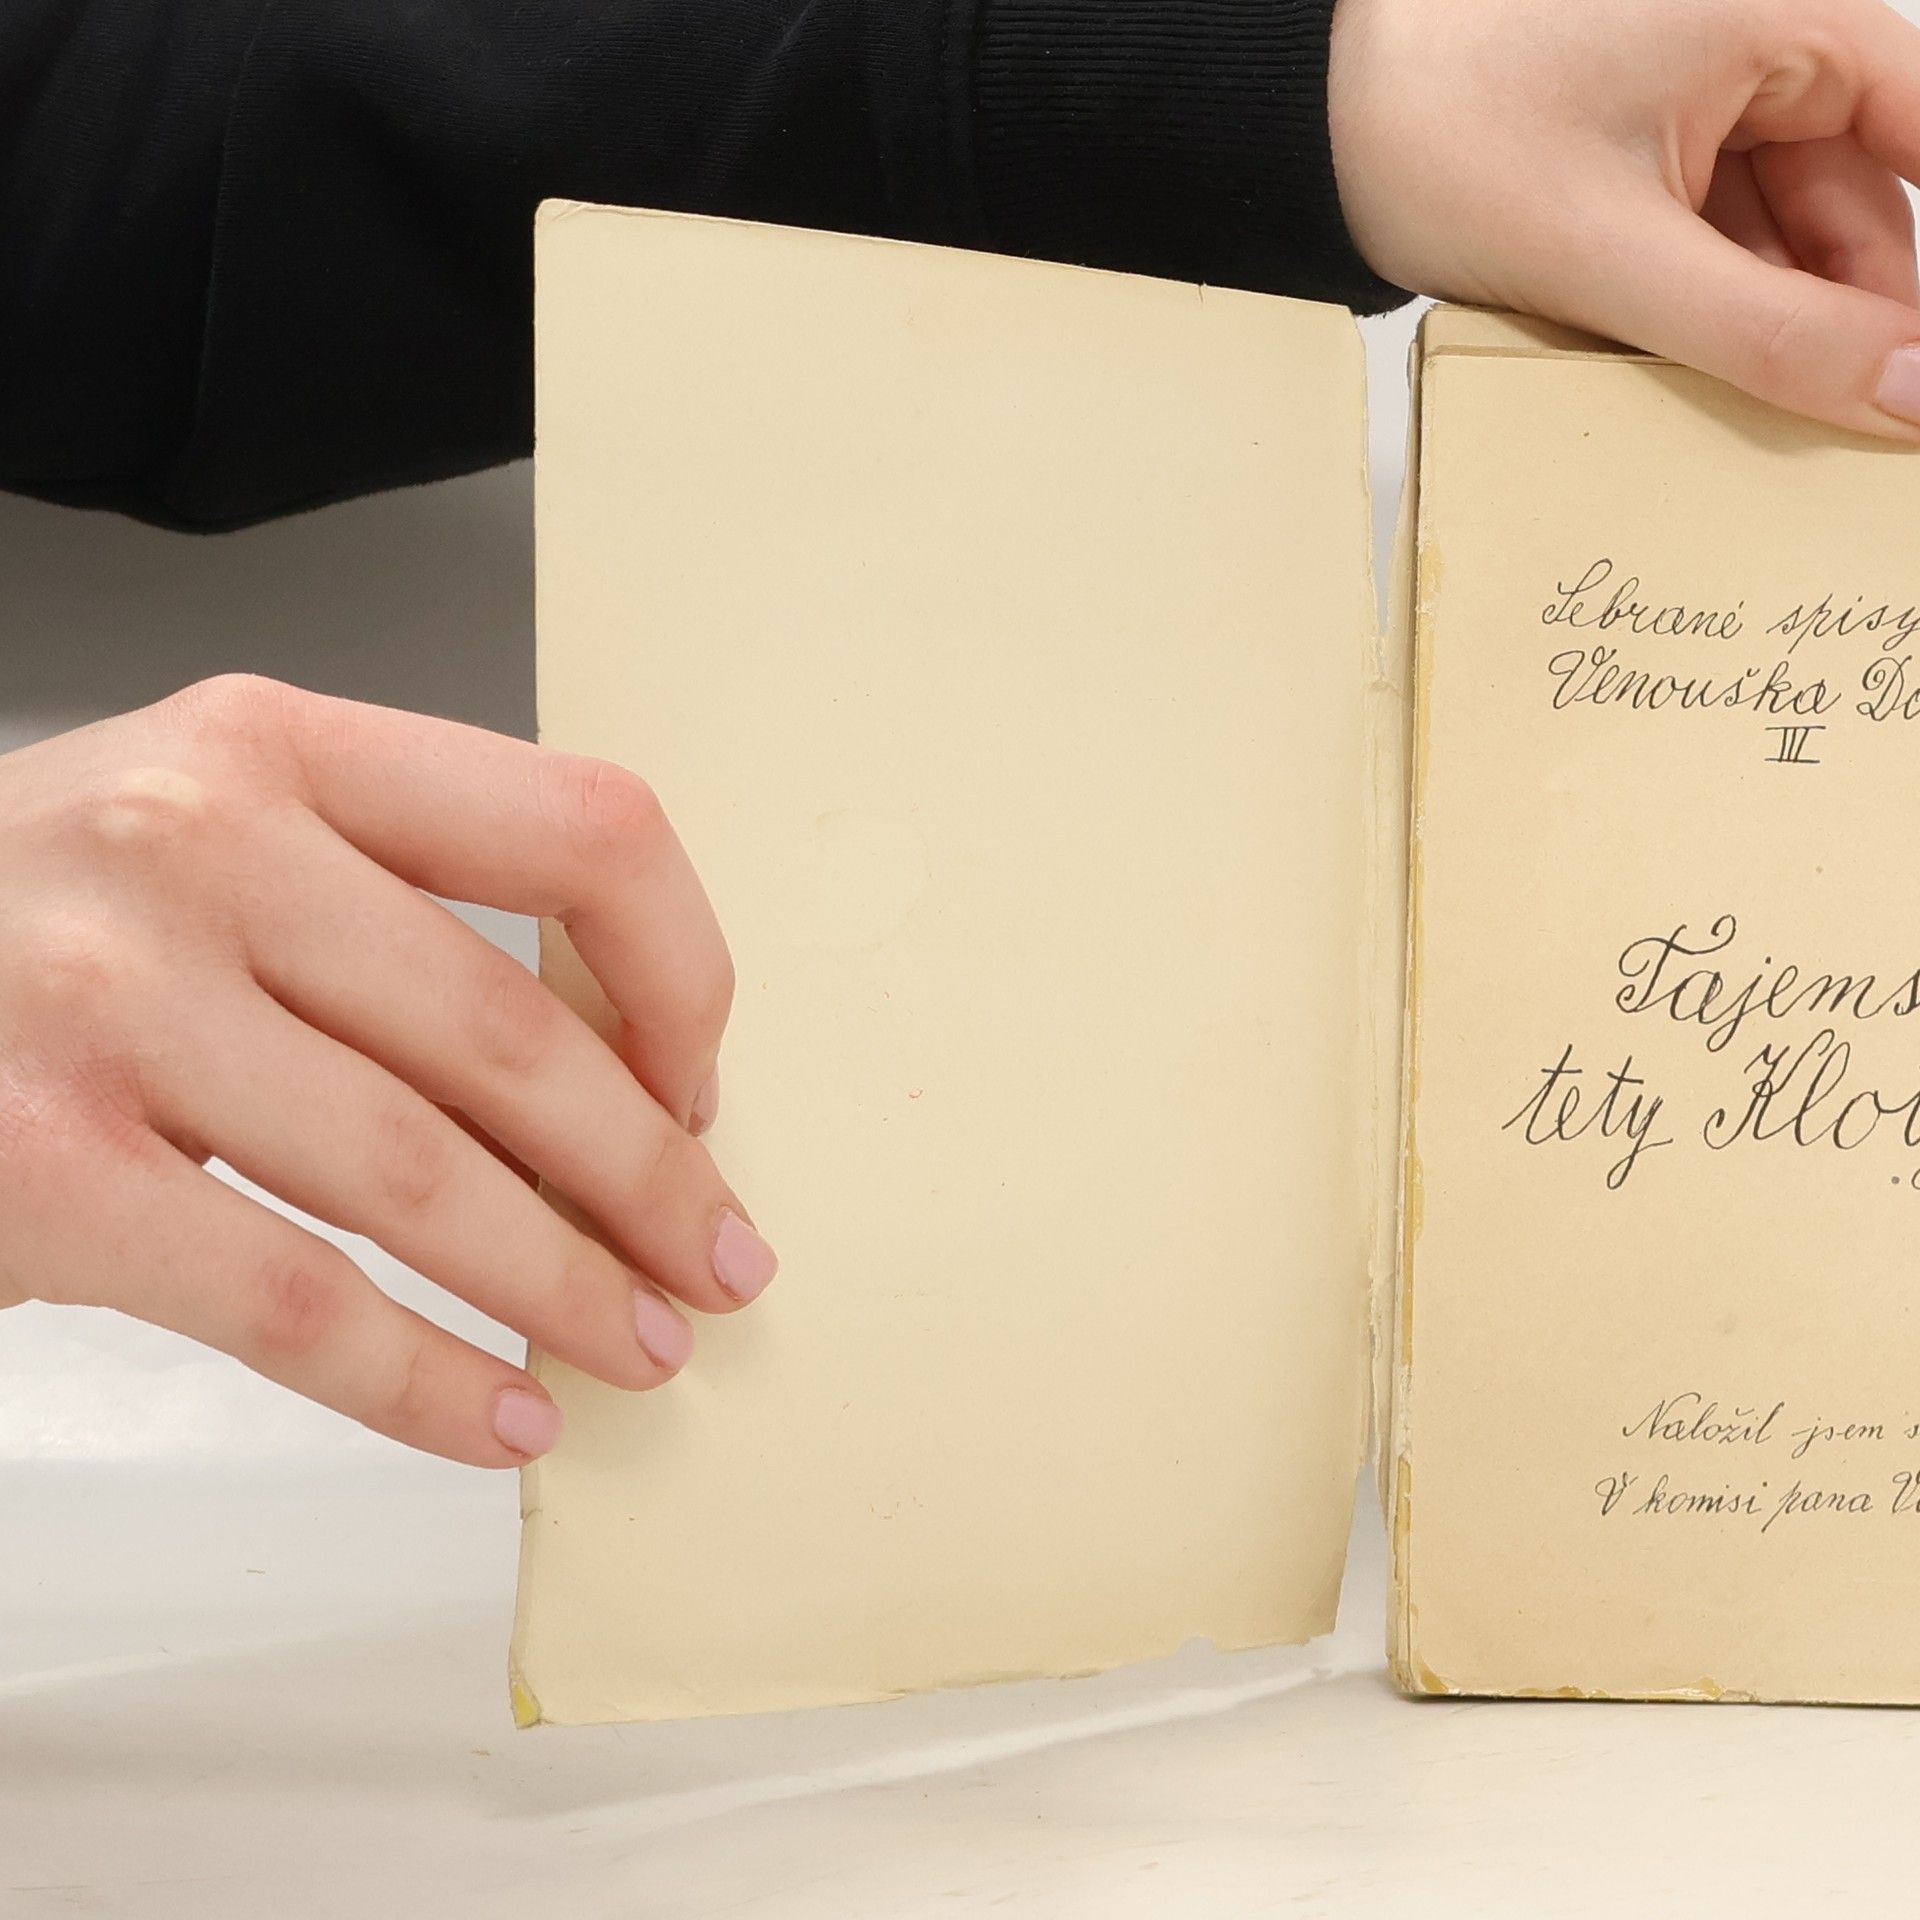 Sebrané spisy
Venouška Do
III
Tajems
tety Klo
Naložil jsem s
V komisi pana V